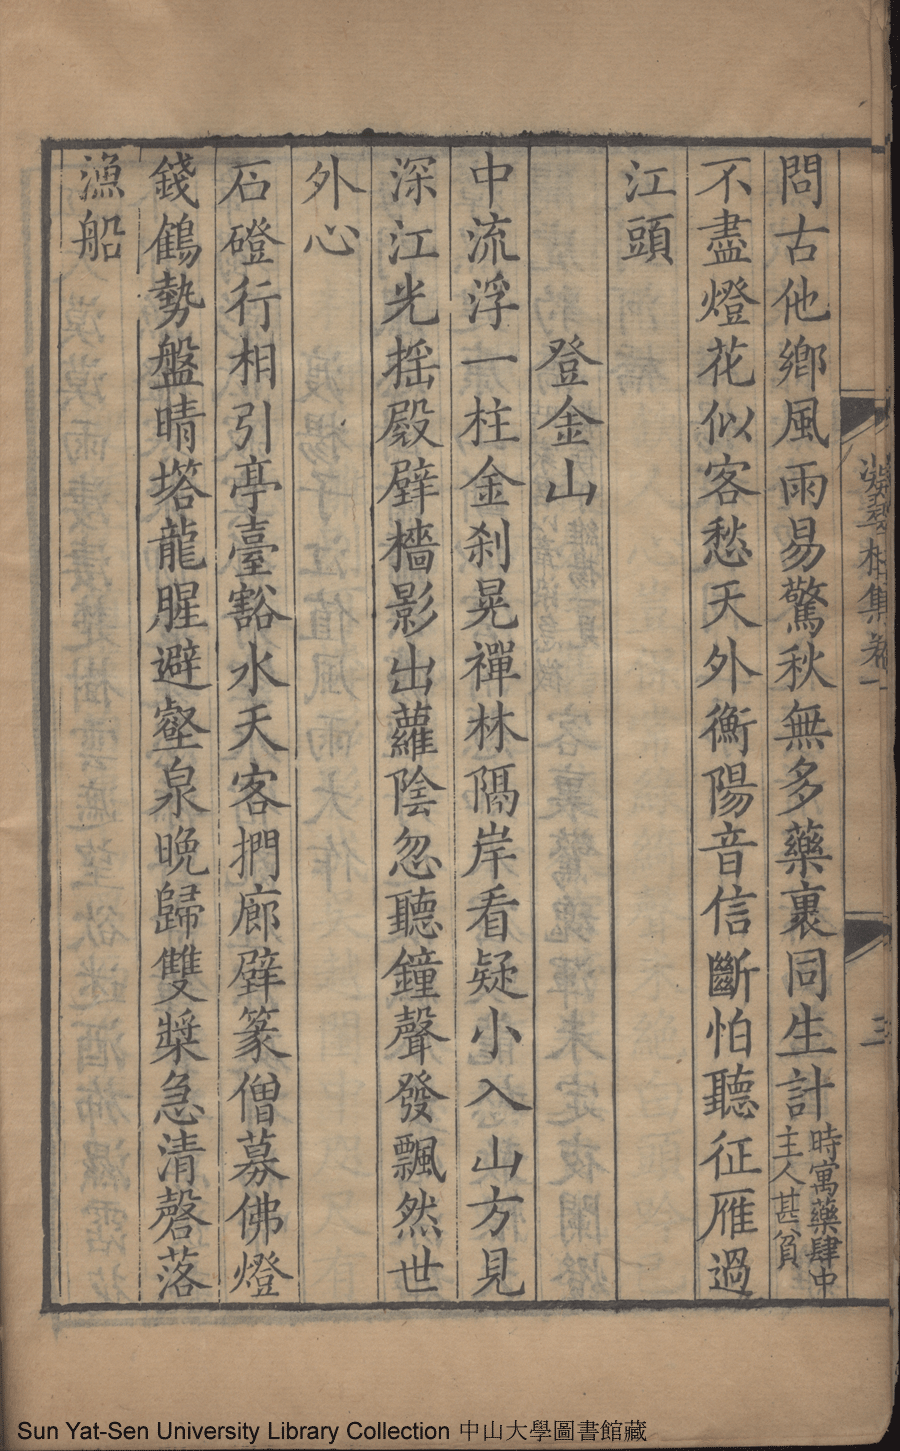 問古他鄉風雨易驚秋無多藥裏同生計時寓藥肆中主人甚貧
不盡燈花似客愁天外衡陽音信斷怕聽征雁過
江頭
登金山
中流浮一柱金刹晃禪林隔岸看疑小入山方見
深江光揺殿壁檣影出蘿陰忽聽鐘聲發飄然世
外心
石磴行相引亭臺豁水天客捫廊壁篆僧募佛燈
錢鶴勢盤晴塔龍腥避壑泉晚歸雙槳急清磬落
漁船
集卷一
三
Sun Yat-Sen University Library Collection 中山大學圖書館藏